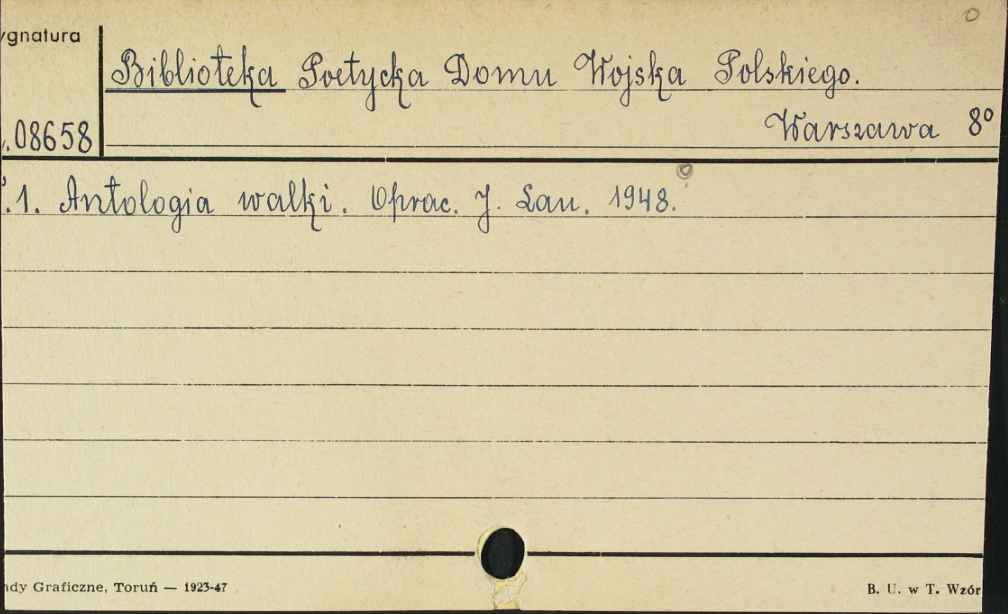 ygnatura
Biblioteka Poetycka Domu Wojska Polskiego.
Warszawa 8º
.08658
.1. Antologia walki. Oprac. J. Lau. 1948.
dy Graficzne, Toruń — 1923-47
B. U. w T. Wzór